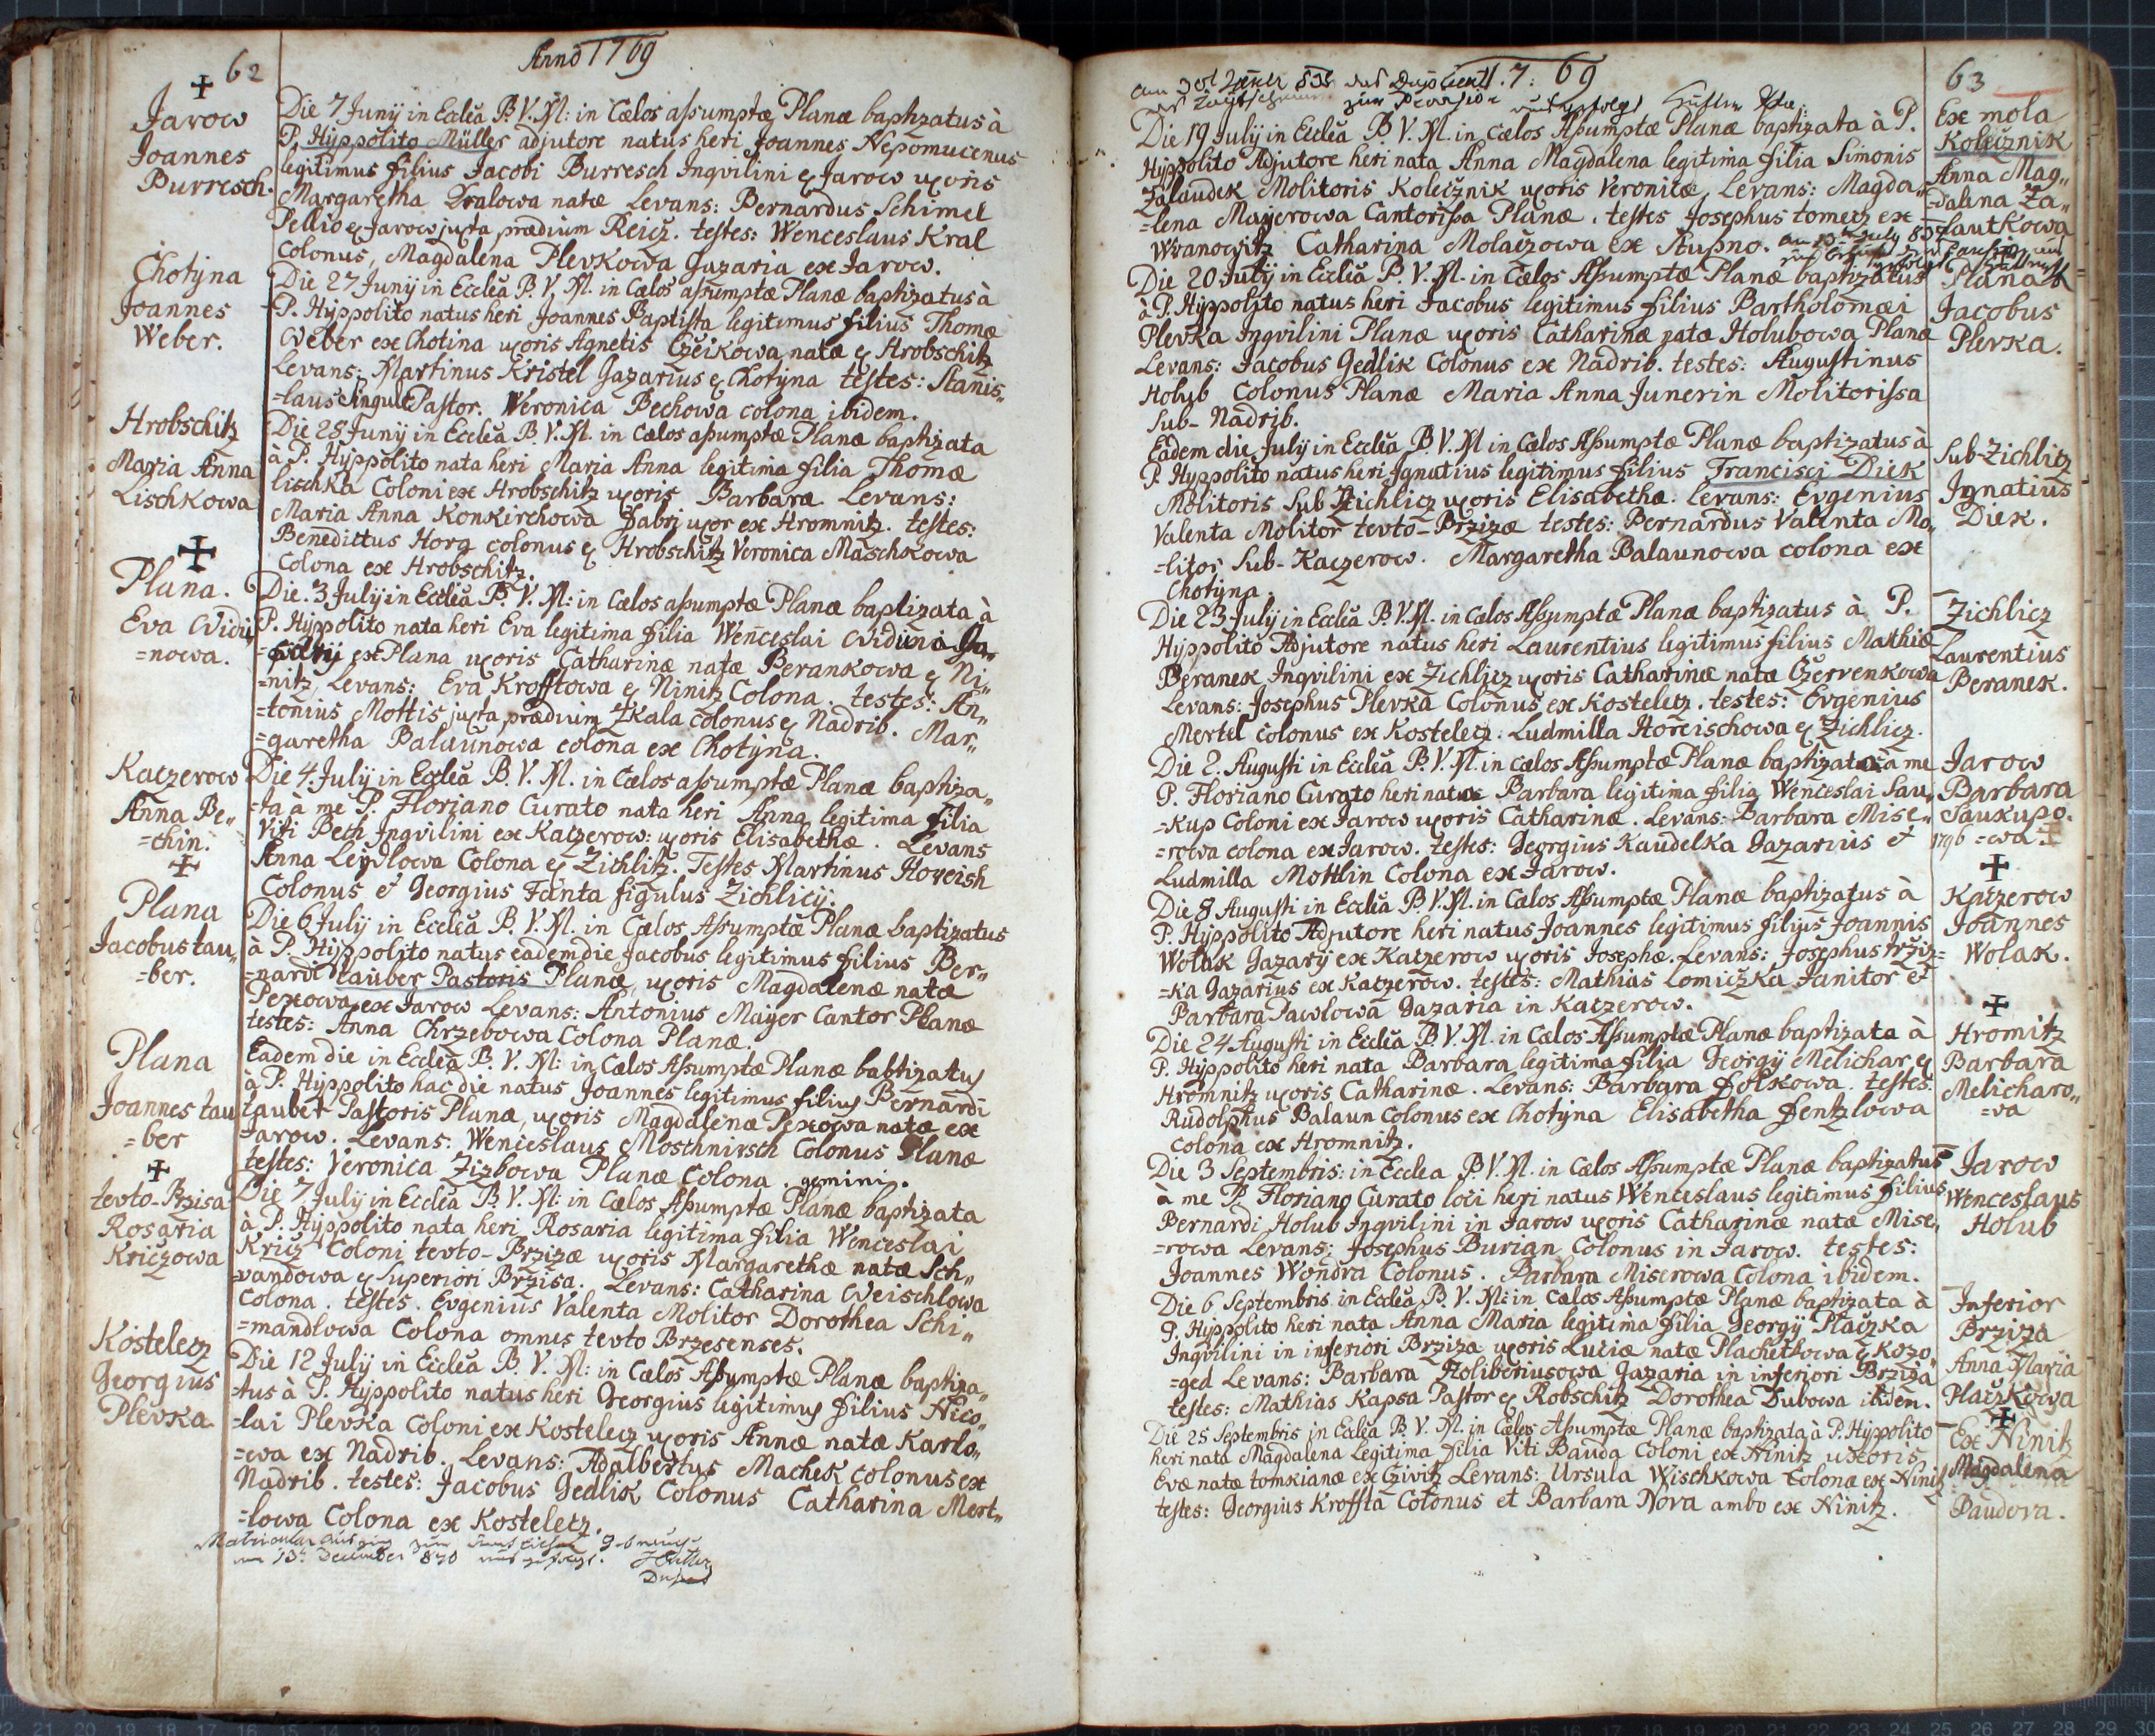 62
Anno 1769
Jarow
Joannes
Burresch.
Die 7 Junÿ in Eccleâ B. V. M: in Cælos aſsumptæ Planæ baptizatus à
P. Hÿppolito Müller adjutore natus heri Joannes Nepomucenus
legitimus filius Jacobi Burresch Inqvilini ex Jarow uxoris
Margaretha Dralowa natæ Levans: Bernardus Schimel
Pellio ex Jarow juxta prædium Reicz. testes: Wenceslaus Kral
Colonus, Magdalena Plevkowa Gazaria ex Jarow.
Chotÿna
Joannes
Weber.
Die 27 Junÿ in Eccleâ B. V. M. in Cælos aſsumptæ Planæ baptizatus à
P. Hÿppolito natus heri Joannes Baptista legitimus filius Thomæ
Weber ex Chotina uxoris Agnetis Czeikowa natæ ex Hrobschitz
Levans: Martinus Kristel Gazarius ex Chotÿna testes: Stanis„
=laus Singult Pastor. Veronica Bechowa colona ibidem.
Hrobschitz
Maria Anna
Lischkowa
Die 28 Junÿ in Eccleâ B. V. M. in Cælos aſsumptæ Planæ baptizata
à P. Hÿppolito nata heri Maria Anna legitima filia Thomæ
lischka Coloni ex Hrobschitz uxoris Barbaræ Levans:
Maria Anna Konkirchowa Fabri uxor ex Hromnitz. testes:
Benedittus Horg colonus ex Hrobschitz Veronica Maschkowa
Colona ex Hrobschitz.
Plana.
Eva Widu„
=nowa.
Die. 3 Julÿ in Eccleâ B. V. M: in Cælos aſsumptæ Planæ baptizata à
P. Hÿppolito nata heri Eva legitima filia Wenceslai Widuna Ga„
=zarÿ ex Plana uxoris Catharinæ natæ Berankowa ex Ni„
=nitz, Levans: Eva Krofftowa ex Ninitz Colona. testes: An„
=tonius Mottis juxta prædium Skala colonus ex Nadrib. Mar„
=garetha Balaunowa colona ex Chotÿna.
Katzerow
Anna Be„
=chin.
Die 4 Julÿ in Eccleâ B. V. M. in Cælos aſsumptæ Planæ baptiza„
=ta à me P. Floriano Curato nata heri Anna legitima filia
Viti Bech Inqvilini ex Katzerow: uxoris Elisabethæ. Levans
Anna Leÿdlowa Colona ex Zichlitz. Testes Martinus Horeish
Colonus & Georgius Fanta figulus Zichlicÿ.
Plana
Jacobus tau„
=ber.
Die 6 Julÿ in Eccleâ B. V. M. in Cælos Aſsumptæ Planæ baptizatus
à P. Hÿppolito natus eadem die Jacobus legitimus filius Ber„
=nardi tauber Pastoris Planæ, uxoris Magdalenæ natæ
Pexowa ex Jarow Levans: Antonius Maÿer Cantor Planæ
testes: Anna Chrzebowa Colona Planæ.
Plana
Joannes tau
=ber
Eadem die in Eccleâ B. V. M: in Cælos Aſsumptæ Planæ babtizatus
à P. Hÿppolito hac die natus Joannes legitimus filius Bernardi
tauber Pastoris Planæ, uxoris Magdalenæ Pexowa natæ ex
Jarow. Levans: Wenceslaus Moschnirsch Colonus Planæ
testes: Veronica Zizbowa Planæ Colona. gemini.
tevto-Brzisa
Rosaria
Kriczowa
Die 7 Julÿ in Eccleâ B. V. M: in Cælos Aſsumptæ Planæ baptizata
à P. Hÿppolito nata heri Rosaria legitima filia Wenceslai
Kricz Coloni tevto-Brzizæ uxoris Margarethæ natæ Sch„
=vandowa ex Superiori Brzisa. Levans: Catharina Weischlowa
Colona. testes. Evgenius Valenta Molitor Dorothea Schi„
=mandlowa Colona omnes tevto Brzesenses.
Kostelecz
Georgius
Plevka
Die 12 Julÿ in Eccleâ B. V. M: in Cælos Aſsumptæ Planæ baptiza„
=tus à P. Hÿppolito natus heri Georgius legitimus filius Nico„
=lai Plevka Coloni ex Kostelecz uxoris Annæ natæ Karlo„
=wa ex Nadrib. Levans: Adalbertus Machek colonus ex
Nadrib. testes: Jacobus Gedlik Colonus Catharina Mert„
=lowa Colona ex Kosteletz.
am 13t December 870
63
17: 69
Ex mola
Kolečznik
Anna Mag„
=dalena Za„
=lautkowa
Die 19 Julÿ in Eccleâ B V. M. in Cælos Aſsumptæ Planæ baptizata à P.
Hÿppolito Adjutore heri nata Anna Magdalena legitima filia Simonis
Zalaudek Molitoris Kolecznik uxoris Veronicæ, Levans: Magda„
=lena Maÿerowa Cantoriſsa Planæ. testes Josephus tometz ex
Wranowitz Catharina Molaczowa ex Stupno.
Plana
Jacobus
Plevka.
Die 20 Julÿ in Eccleâ B. V. M. in Cælos Aſsumptæ Planæ baptizatus
à P. Hÿppolito natus heri Jacobus legitimus filius Bartholomæi
Plevka Inqvilini Planæ uxoris Catharinæ natæ Holubowa Planæ
Levans: Jacobus Gedlik Colonus ex Nadrib. testes: Augustinus
Holub Colonus Planæ Maria Anna Junerin Molitoriſsa
Sub-Nadrib.
Sub-Zichlicz
Ignatius
Diek.
Eadem die Julÿ in Eccleâ B. V. M in Cælos Aſsumptæ Planæ baptizatus à
P. Hÿppolito natus heri Ignatius legitimus filius Francisci Diek
Molitoris Sub Zichlicz uxoris Elisabethæ. Levans: Evgenius
Valenta Molitor tevto-Brzizæ testes: Bernardus Valenta Mo„
=litor Sub-Kaczerow. Margaretha Balaunowa colona ex
Chotÿna.
Zichlicz
Laurentius
Beranek.
Die 23 Julÿ in Eccleâ B. V. M. in Cælos Aſsumptæ Planæ baptizatus à P.
Hÿppolito Adjutore natus heri Laurentius legitimus filius Mathiæ
Beranek Inqvilini ex Zichlicz uxoris Catharinæ natæ Czervenkowa
Levans: Josephus Plevka Colonus ex Kosteletz. testes: Evgenius
Mertel Colonus ex Kostelecz. Ludmilla Horeischowa ex Zichlicz.
Jarow
Barbara
Saukupo.
1796 =wa
Die 2. Augusti in Eccleâ B. V. M. in Cælos Aſsumptæ Planæ baptizata à me
P. Floriano Curato heri nata Barbara legitima filia Wenceslai Sau„
=kup Coloni ex Jarow uxoris Catharinæ. Levans: Barbara Mise„
=rowa colona ex Jarow. testes: Georgius Kaudelka Gazarius &
Ludmilla Mottlin Colona ex Jarow.
Katzerow
Joannes
Wolak.
Die 8 Augusti in Eccleâ B. V. M. in Cælos Aſsumptæ Planæ baptizatus à
P. Hÿppolito Adjutore heri natus Joannes legitimus filius Joannis
Wolak Gazarÿ ex Katzerow uxoris Josephæ. Levans: Josephus Hrziz=
=ka Gazarius ex Katzerow. testes: Mathias Lomiczka Janitor &
Barbara Pawlowa Gazaria in Katzerow.
Hromitz
Barbara
Melicharo„
=va
Die 24 Augusti in Eccleâ B. V. M. in Cælos Aſsumptæ Planæ baptizata à
P. Hÿppolito heri nata Barbara legitima filia Georgÿ Melichar ex
Hromnitz uxoris Catharinæ. Levans: Barbara Folkowa. testes:
Rudolphus Balaun Colonus ex Chotÿna Elisabetha Fentzlowa
colona ex Hromnitz.
Jarow
Wenceslaus
Holub
Die 3 Septembris: in Ecclea B. V. M. in Cælos Aſsumptæ Planæ baptizatus
à me P. Floriano Curato loci heri natus Wenceslaus legitimus filius
Bernardi Holub Inqvilini in Jarow uxoris Catharinæ natæ Mise„
=rowa Levans: Josephus Burian Colonus in Jarow. testes:
Joannes Wondra Colonus. Barbara Miserowa Colona ibidem.
Inferior
Brziza
Anna Maria
Placzkowa
Die 6 Septembris in Eccleâ B. V. M: in Cælos Aſsumptæ Planæ baptizata à
P. Hÿppolito heri nata Anna Maria legitima filia Georgÿ Placzka
Inqvilini in inferiori Brziza uxoris Luciæ natæ Plachetkowa ex Kozo„
=ged Levans: Barbara Holiberiusowa Gazaria in inferiori Brziza
testes: Mathias Kapsa Pastor ex Robschitz Dorothea Dubowa ibden.
Ex Ninitz
Magdalena
Baudova.
Die 25 Septembris in Eccleâ B. V. M. in Cælos Aſsumptæ Planæ baptizata à P. Hÿppolito
heri nata Magdalena Legitima filia Viti Bauda Coloni ex Ninitz uxoris
Evæ natæ tomkianæ ex Czivitz Levans: Ursula Wischkowa Colona ex Ninitz
testes: Georgius Kroffta Colonus et Barbara Nova ambo ex Ninitz.